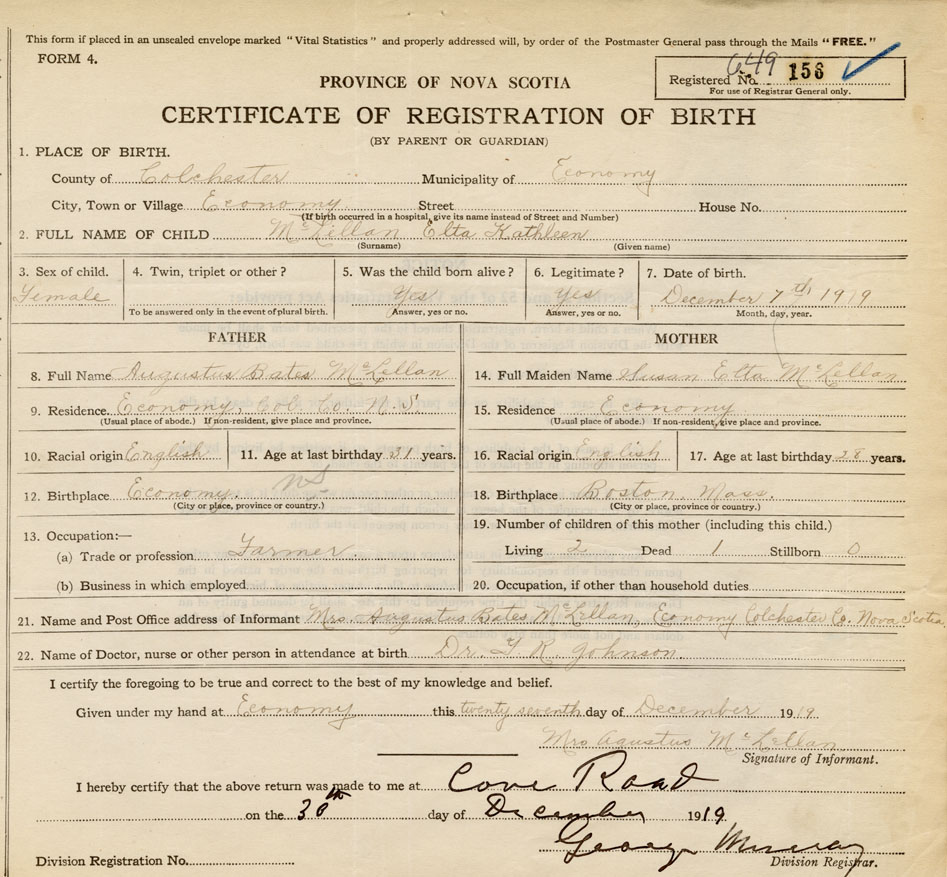 This form if placed in an unsealed envelope marked "Vital Statistics" and properly addressed will, by order of the Postmaster General pass through the Mails "FREE."
FORM 4.
649
Registered No. 156
For use of Registrar General only.
PROVINCE OF NOVA SCOTIA
CERTIFICATE OF REGISTRATION OF BIRTH
(BY PARENT OR GUARDIAN)
1. PLACE OF BIRTH.
County of Colchester Municipality of Economy
City, Town or Village Economy Street House No.
(If birth occurred in a hospital, give its name instead of Street and Number)
2. FULL NAME OF CHILD McLellan Elta Kathleen
(Surname) (Given name)
3. Sex of child. 4. Twin, triplet or other? 5. Was the child born alive? 6. Legitimate? 7. Date of birth.
Female Yes Yes December 7th 1919
To be answered only in the event of plural birth. Answer, yes or no. Answer, yes or no. Month, day, year.
FATHER MOTHER
8. Full Name Augustus Bates McLellan 14. Full Maiden Name Susan Elta McLellan
9. Residence. Economy, Col. Co. N.S. 15. Residence Economy
(Usual place of abode.) If non-resident, give place and province. (Usual place of abode.) If non-resident, give place and province.
10. Racial origin English 11. Age at last birthday 31 years. 16. Racial origin English 17. Age at last birthday 28 years.
12. Birthplace Economy. NS 18. Birthplace Boston, Mass.
(City or place, province or country.) (City or place, province or country.)
19. Number of children of this mother (including this child.)
13. Occupation:—
(a) Trade or profession Farmer Living 2 Dead 1 Stillborn 0
(b) Business in which employed 20. Occupation, if other than household duties
21. Name and Post Office address of Informant Mrs. Augustus Bates McLellan, Economy Colchester Co. Nova Scotia
22. Name of Doctor, nurse or other person in attendance at birth Dr. T. R. Johnson
I certify the foregoing to be true and correct to the best of my knowledge and belief.
Given under my hand at Economy this twenty seventh day of December 1919
Mrs Agustus McLellan
Signature of Informant.
I hereby certify that the above return was made to me at Cove Road
on the 30th day of December 1919
George Murray
Division Registration No. Division Registrar.